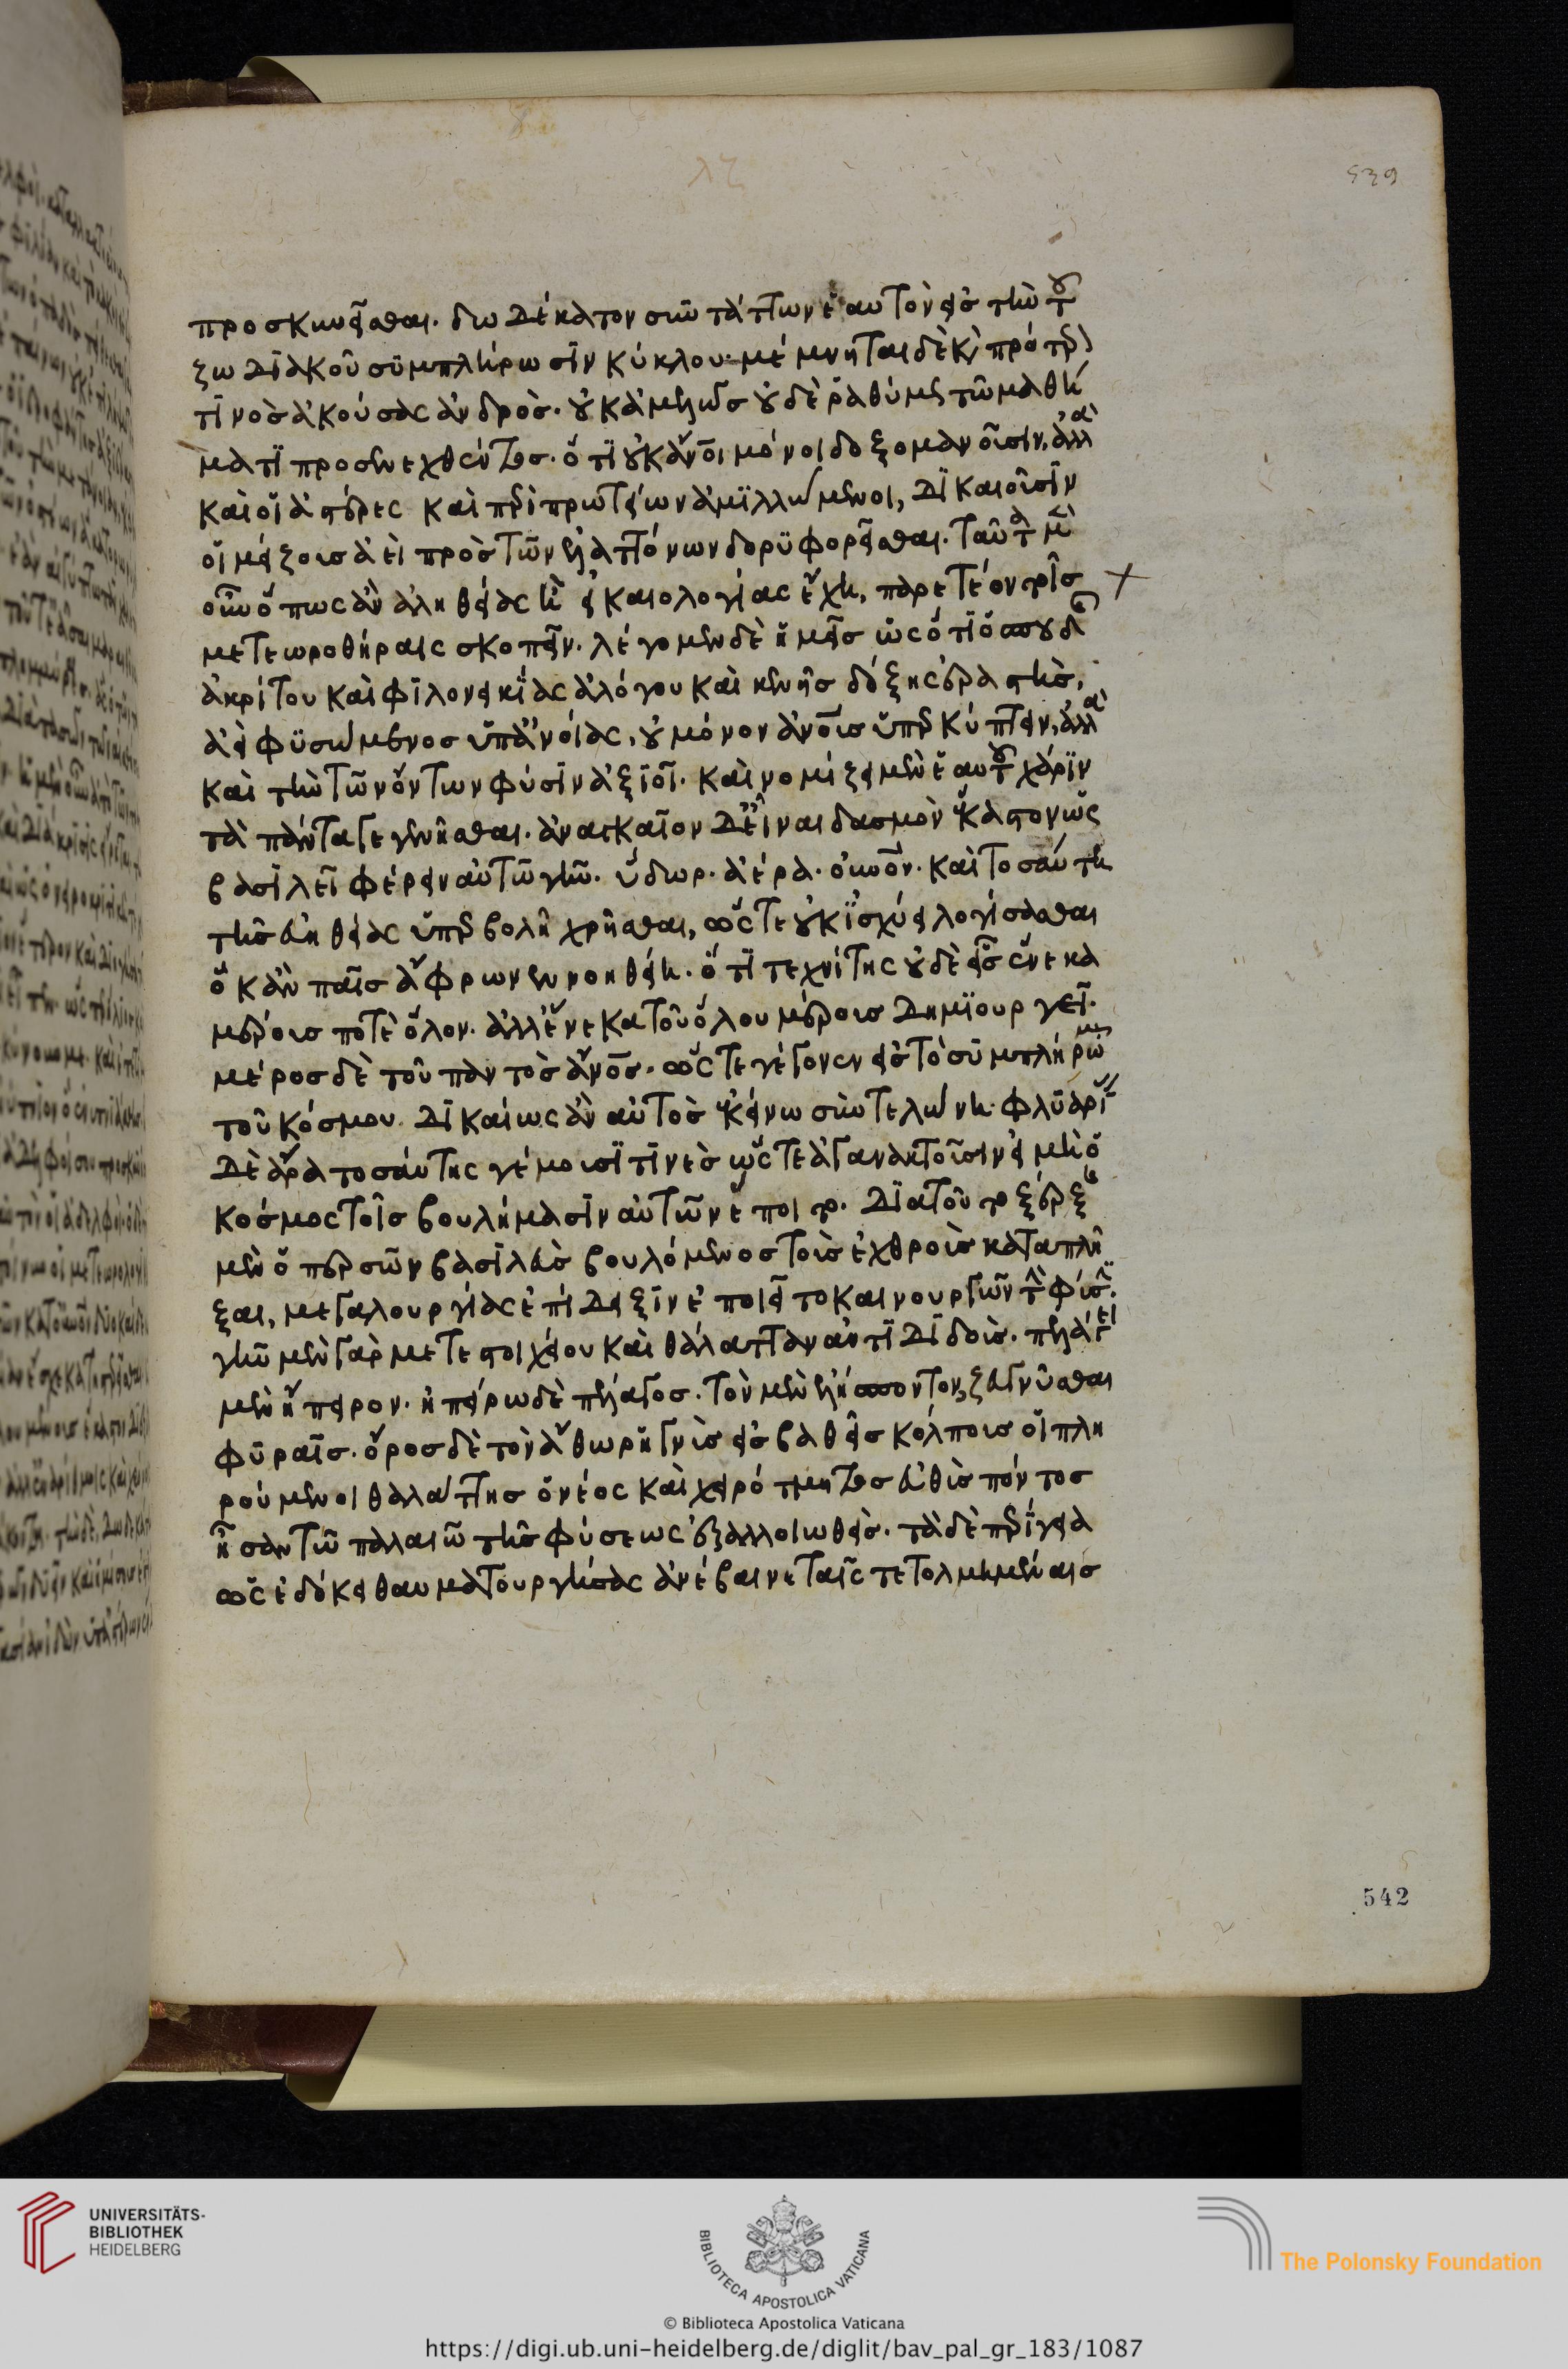 προσκυνεῖσθαι. δωδέκατον συντάττων ἑαυτὸν εἰς τὴν τοῦ
ζωδιακοῦ συμπλήρωσιν κύκλου· μέμνηται δὲ καὶ πρότερ
τινὸς ἀκούσας ἀνδρὸς. οὐκ ἀμελῶς οὐδὲ ῥαθύμως τῶ μαθή
ματι προσενεχθέντος. ὅτι οὐκ ἄνοι μόνοι δοξομανοῦσιν, ἀλλὰ
καὶ οἱ ἀστέρες καὶ περὶ πρωτείων ἁμιλλώμενοι, δικαιοῦσιν
οἱ μείζους ἀεὶ πρὸς τῶν ἐλαττόνων δορυφορεῖσθαι. ταῦτα μὲν
οὖν ὅπως ἂν ἀληθείας ἢ εἰκαιολογίας ἔχη, παρετέον τοῖς
μετεωροθήραις σκοπεῖν. λέγομεν δὲ ἡμεῖς ὡς ὅτι ὁ σπουδῆς
ἀκρίτου καὶ φιλονεικίας ἀλόγου καὶ κενῆς δόξης ἐραστὴς,
ἀεὶ φυσώμενος ὑπ' ἀνοίας, οὐ μόνον ἀνους ὑπερκύπτειν, ἀλλὰ
καὶ τὴν τῶν ὄντων φύσιν ἀξιοῖ. καὶ νομίζει μὲν ἑαυτοῦ χάριν
τὰ πάντα γεγενῆσθαι. ἀναγκαῖον δ' εἶναι δασμὸν ἕκαστον ὡς
βασιλεῖ φέρειν αὐτῶ γῆν. ὕδωρ. ἀέρα. οὐνὸν. καὶ τοσαύτη
τῆς εὐηθείας ὑπερβολῆ χρῆσθαι, ὥστε οὐκ ἰσχύει λογίσασθαι
ὃ κἂν παῖς ἄφρων ἐννοηθείη. ὅτι τεχνίτης οὐδεὶς ἕνεκα
μέρους ποτὲ ὅλον. ἀλλ' ἕνεκα τοῦ ὅλου μέρους δημιουργεῖ.
μέρος δὲ τοῦ παντὸς ἄνος. ὥστε γέγονεν εἰς τὸ συμπλήρωμα
τοῦ κόσμου. δικαίως ἂν αὐτὸς ἐκείνω συντελῶν ἦ. φλυαρίας
δὲ ἄρα τοσαύτης γέμουσι τινὲς ὥστε ἀγανακτοῦσιν εἰ μὴ ὁ
κόσμος τοῖς βουλήμασιν αὐτῶν ἕποιτο. διὰ τοῦτο ξέρξης
μὲν ὁ περσῶν βασιλεὺς βουλόμενος τοὺς ἐχθροὺς καταπλῆ
ξαι, μεγαλουργίας ἐπίδειξιν ἐποιεῖτο καινουργῶν τὴν φύσιν.
γῆν μὲν γὰρ μετεστοιχείου καὶ θάλατταν ἀντιδιδοὺς. πελάγει
μὲν ἤπειρον. ἠπείρω δὲ πέλαγος. τὸν μὲν ἑλλήσποντον ζευγνῦσθαι
φύραις. ὄρος δὲ τὸν ἄθω ῥηγνὺς εἰς βαθεῖς κόλπους οἳ πλη
ρούμενοι θαλάττης ὁ νέος καὶ χειρότμητος εὐθὺς πόντος
ἦσαν τῶ παλαιῶ τῆς φύσεως ἐξαλλοιωθεὶς. τὰ δὲ περίγεια
ὡς ἐδόκει θαυματουργήσας ἀνέβαινε ταῖς τετολμημέναις
539
542
UNIVERSITÄTS-
BIBLIOTHEK
HEIDELBERG
BIBLIOTECA APOSTOLICA VATICANA
The Polonsky Foundation
© Biblioteca Apostolica Vaticana
https://digi.ub.uni-heidelberg.de/diglit/bav_pal_gr_183/1087